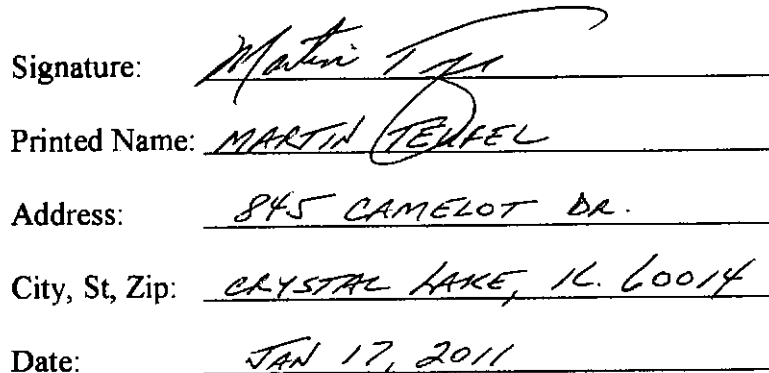 Signature: Martin
Printed Name: MARTIN TEUFEL
Address: 845 CAMELOT DR.
City, St, Zip: CRYSTAL LAKE, IL. 60014
Date: JAN 17, 2011